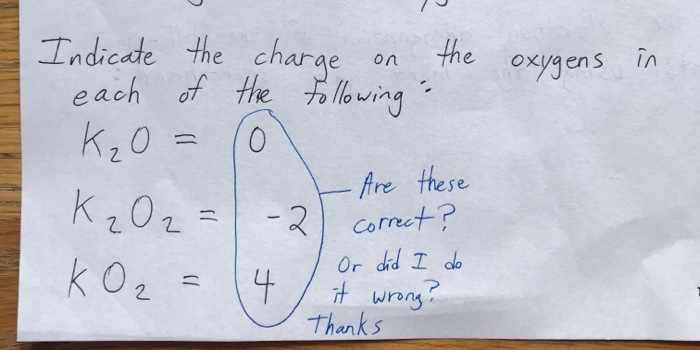 Indicate the charge on the oxygens in
each of the following:
K₂O = 0
K₂O₂ = -2
KO₂ = 4
Are these
correct?
Or did I do
it wrong?
Thanks